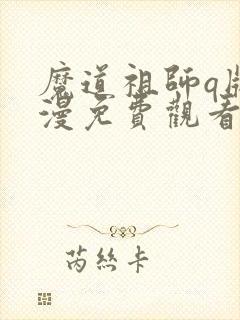 魔道祖師q版
漫免費觀看
芮絲卡